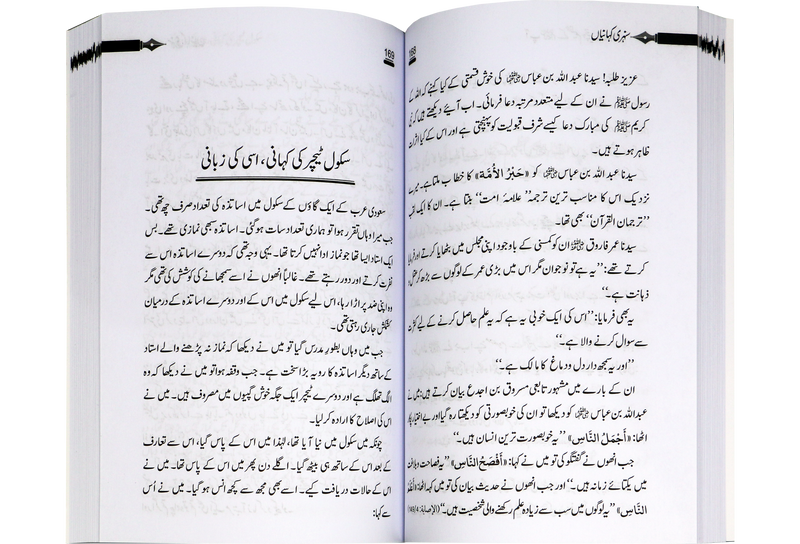 سنہری کہانیاں
168
عزیز طلبہ! سیدنا عبد اللہ بن عباس رضی اللہ عنہ کی خوش قسمتی کے کیا کہنے کہ اللہ کے
رسول ﷺ نے ان کے لیے متعدد مرتبہ دعا فرمائی۔ اب آیئے دیکھتے ہیں کہ
کریم ﷺ کی مبارک دعا کیسے شرف قبولیت کو پہنچتی ہے اور اس کے کیا اثرات
ظاہر ہوتے ہیں۔
سیدنا عبد اللہ بن عباس رضی اللہ عنہ کو «حَبْرُ الأُمَّة» کا خطاب ملتا ہے۔ میرے
نزدیک اس کا مناسب ترین ترجمہ ’’علامۂ امت‘‘ بنتا ہے۔ ان کا ایک
’’ترجمان القرآن‘‘ بھی تھا۔
سیدنا عمر فاروق رضی اللہ عنہ ان کو کمسنی کے باوجود اپنی مجلس میں بٹھایا کرتے اور
کرتے تھے: ’’یہ ہے تو نوجوان مگر اس میں بڑی عمر کے لوگوں سے بڑھ کر
ذہانت ہے۔‘‘
یہ بھی فرمایا: ’’اس کی ایک خوبی یہ ہے کہ یہ علم حاصل کرنے کے لیے
سے سوال کرنے والا ہے۔‘‘
’’اور یہ سمجھ دار دل و دماغ کا مالک ہے۔‘‘
ان کے بارے میں مشہور تابعی مسروق بن اجدع بیان کرتے ہیں: میں نے
عبداللہ بن عباس رضی اللہ عنہ کو دیکھا تو ان کی خوبصورتی کو دیکھتا رہ گیا اور بے اختیار
اٹھا: «أَجْمَلُ النَّاسِ» ’’یہ خوبصورت ترین انسان ہیں۔‘‘
جب انھوں نے گفتگو کی تو میں نے کہا: «أَفْصَحُ النَّاسِ» ’’یہ فصاحت و
میں یکتائے زمانہ ہیں۔‘‘ اور جب انھوں نے حدیث بیان کی تو میں کہہ اٹھا:
النَّاسِ» ’’یہ لوگوں میں سب سے زیادہ علم رکھنے والی شخصیت ہیں۔‘‘ (الإصابة:
169
سکول ٹیچر کی کہانی، اسی کی زبانی
سعودی عرب کے ایک گاؤں کے سکول میں اساتذہ کی تعداد صرف چھ تھی۔
جب میرا وہاں تقرر ہوا تو ہماری تعداد سات ہو گئی۔ اساتذہ سبھی نمازی تھے۔ بس
ایک استاد ایسا تھا جو نماز ادا نہیں کرتا تھا۔ یہی وجہ تھی کہ دوسرے اساتذہ اس سے
نفرت کرتے اور دور رہتے تھے۔ غالباً انھوں نے اسے سمجھانے کی کوشش کی تھی مگر
وہ اپنی ضد پر اڑا رہا، اس لیے سکول میں اس کے اور دوسرے اساتذہ کے درمیان
کشمکش جاری رہتی تھی۔
جب میں وہاں بطور مدرس گیا تو میں نے دیکھا کہ نماز نہ پڑھنے والے استاد
کے ساتھ دیگر اساتذہ کا رویہ بڑا سخت ہے۔ جب وقفہ ہوا تو میں نے دیکھا کہ وہ
الگ تھلگ ہے اور دوسرے ٹیچر ایک جگہ خوش گپیوں میں مصروف ہیں۔ میں نے
اس کی اصلاح کا ارادہ کر لیا۔
چونکہ میں سکول میں نیا آیا تھا، لہٰذا میں اس کے پاس گیا، اس سے تعارف
کے بعد اس کے ساتھ ہی بیٹھ گیا۔ اگلے دن پھر میں اس کے پاس تھا۔ میں نے
اس کے حالات دریافت کیے۔ اسے بھی مجھ سے کچھ انس ہو گیا۔ میں نے اُس
سے کہا: